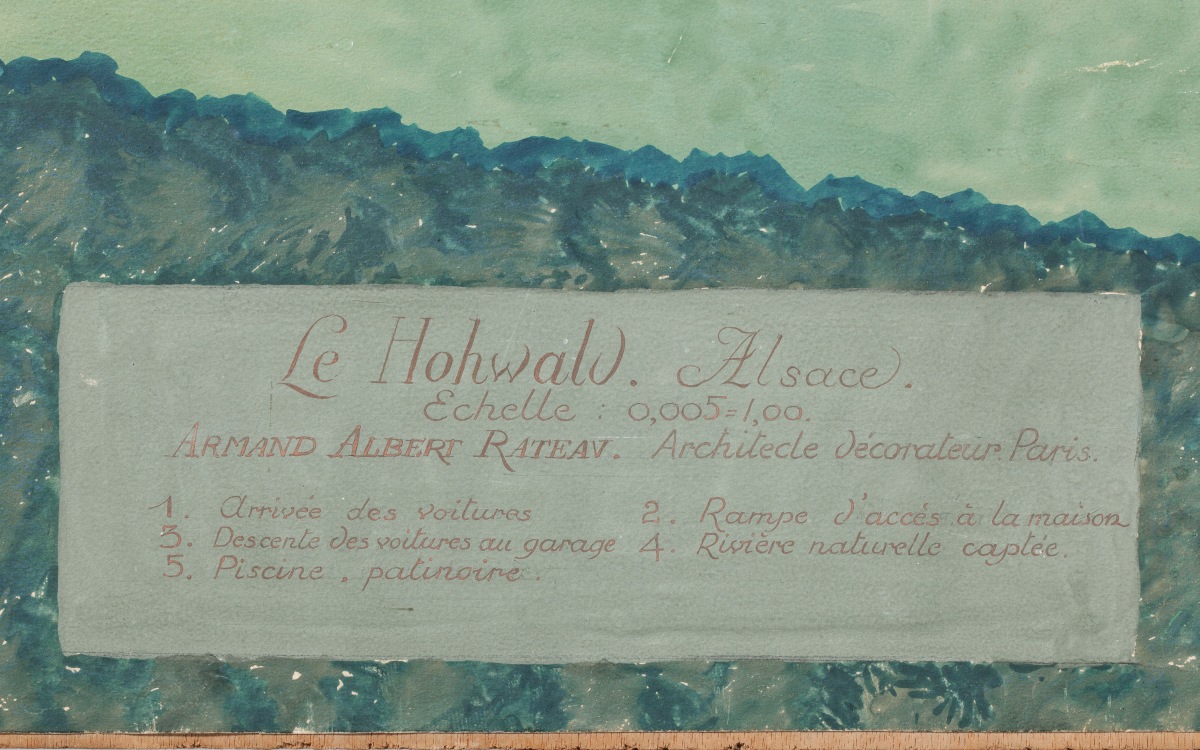 Le Hohwald. Alsace.
Echelle : 0,005=1,00.
ARMAND ALBERT RATEAU. Architecte décorateur. Paris.
1. Arrivée des voitures 2. Rampe d'accés à la maison
3. Descente des voitures au garage 4. Rivière naturelle captée.
5. Piscine, patinoire.